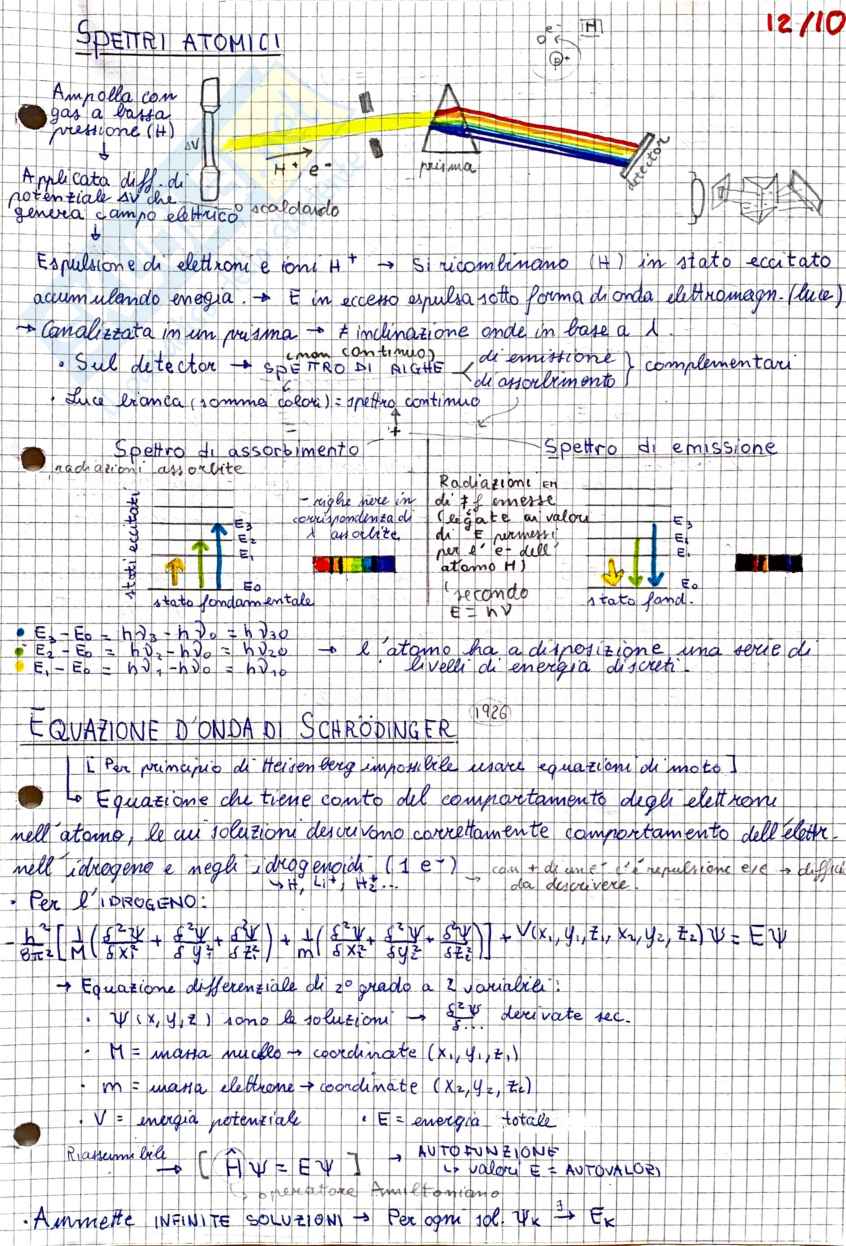 12/10
SPETTRI ATOMICI
e⁻ H
P⁺
Ampolla con
gas a bassa
pressione (H)
↓
ΔV
H⁺, e⁻
prisma
detector
Applicata diff. di
potenziale ΔV che
genera campo elettrico o scaldando
↓
Espulsione di elettroni e ioni H⁺ → Si ricombinano (H) in stato eccitato
accumulando enegia. → E in eccesso espulsa sotto forma di onda elettromagn. (luce)
→ Canalizzata in un prisma → ≠ inclinazione onde in base a λ.
(non continuo)
• Sul detector → SPETTRO DI RIGHE < di emissione
di assorbimento } complementari
• Luce bianca (somma colori) = spettro continuo
− +
Spettro di assorbimento
radiazioni assorbite
stati eccitati
E₃
E₂
E₁
E₀
stato fondamentale
- righe nere in
corrispondenza di
λ assorbite
Spettro di emissione
Radiazioni EM
di ≠ f emesse
(legate ai valori
di E permessi
per l'e⁻ dell'
atomo H)
(secondo
E = hν
E₃
E₂
E₁
E₀
stato fond.
• E₃-E₀ = hν₃-hν₀ = hν₃₀
• E₂-E₀ = hν₂-hν₀ = hν₂₀ → l'atomo ha a disposizione una serie di
• E₁-E₀ = hν₁-hν₀ = hν₁₀ livelli di energia discreti.
EQUAZIONE D'ONDA DI SCHRÖDINGER 1926
[Per principio di Heisenberg impossibile usare equazioni di moto]
↳ Equazione che tiene conto del comportamento degli elettroni
nell'atomo, le cui soluzioni descrivono correttamente comportamento dell'elettr.
nell'idrogeno e negli idrogenoidi (1 e⁻) → con + di un e⁻ c'è repulsione e/e → diffici
↳ H, Li⁺, H₂⁺... da descrivere.
• Per l'IDROGENO:
-h²/8π² [1/M (δ²Ψ/δx₁² + δ²Ψ/δy₁² + δ²Ψ/δz₁²) + 1/m (δ²Ψ/δx₂² + δ²Ψ/δy₂² + δ²Ψ/δz₂²)] + V(x₁, y₁, z₁, x₂, y₂, z₂)Ψ = EΨ
→ Equazione differenziale di 2° grado a 2 variabili:
• Ψ(x,y,z) sono le soluzioni → δ²Ψ/δ... derivate sec.
• M = massa nucleo → coordinate (x₁,y₁,z₁)
• m = massa elettrone → coordinate (x₂,y₂,z₂)
• V = energia potenziale • E = energia totale
Riassumibile → [ĤΨ = EΨ] → AUTOFUNZIONE
↳ valori E = AUTOVALORI
↳ operatore Amiltoniano
• Ammette INFINITE SOLUZIONI → Per ogni sol. Ψₖ ∃→ Eₖ